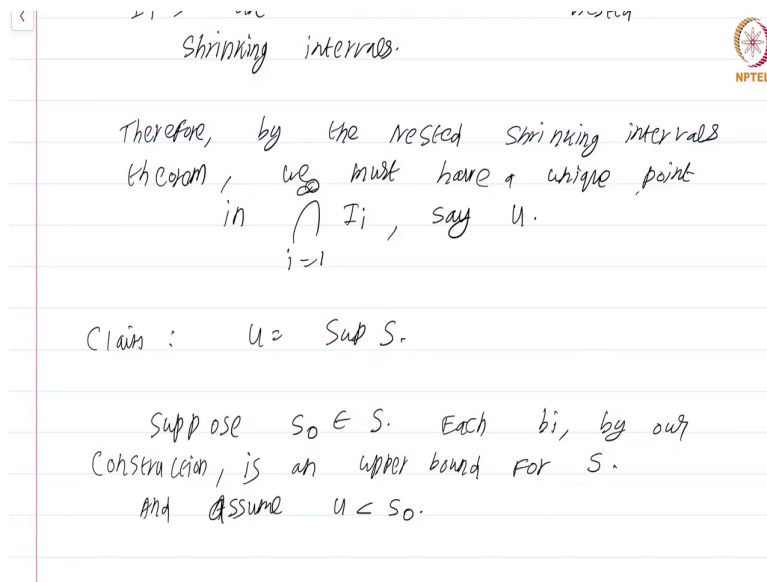 Shrinking intervals.
NPTEL
Therefore, by the Nested Shrinking intervals
theorem, we must have a unique point
in ∞ ⋂ i=1 Ii, say u.
Claim : u = Sup S.
Suppose s0 ∈ S. Each bi, by our
Construction, is an upper bound for S.
And Assume u < s0.